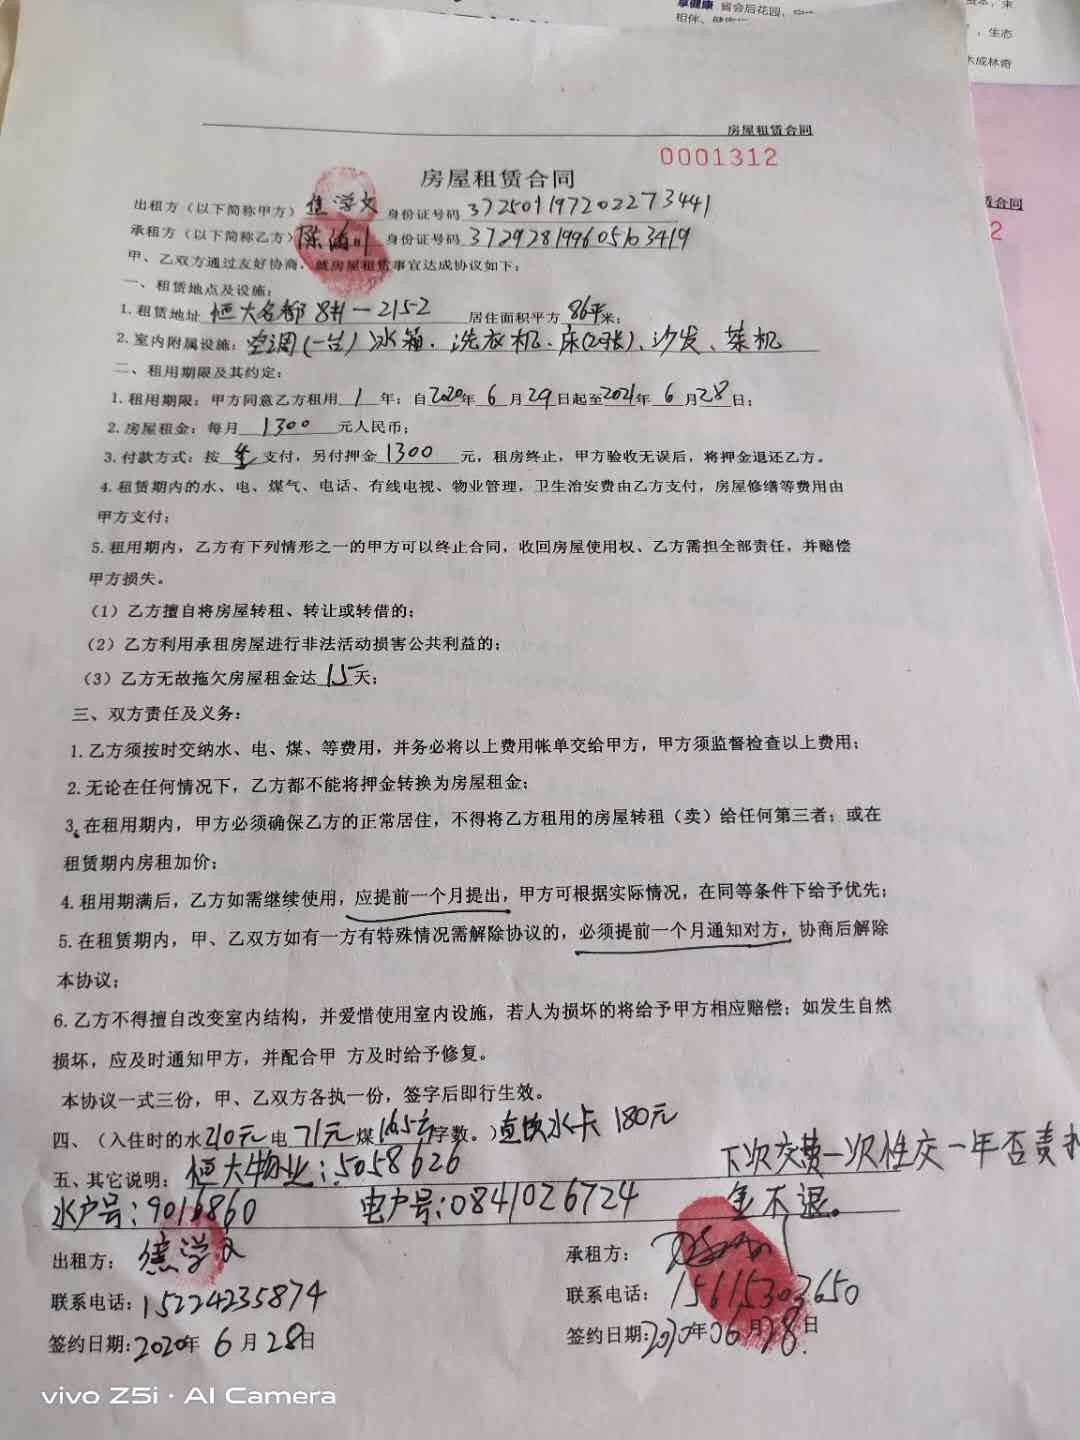 享健康 省会后花园，
相伴、健
，生态
木成林奇
房屋租赁合同
0001312
赁合同
2
房屋租赁合同
出租方（以下简称甲方）焦学文 身份证号码 372501197202273441
承租方（以下简称乙方）陈 身份证号码 372928199605103419
甲、乙双方通过友好协商，就房屋租赁事宜达成协议如下：
一、租赁地点及设施：
1.租赁地址 恒大名都 8#－2152 居住面积平方 86平米；
2.室内附属设施：空调(一台) 冰箱、洗衣机、床(2张)、沙发、茶机
二、租用期限及其约定：
1.租用期限：甲方同意乙方租用 1 年；自2020年 6 月29日起至2021年 6 月28日；
2.房屋租金：每月 1300 元人民币；
3.付款方式：按 年 支付，另付押金 1300 元，租房终止，甲方验收无误后，将押金退还乙方。
4.租赁期内的水、电、煤气、电话、有线电视、物业管理，卫生治安费由乙方支付，房屋修缮等费用由
甲方支付；
5.租用期内，乙方有下列情形之一的甲方可以终止合同，收回房屋使用权、乙方需担全部责任，并赔偿
甲方损失。
（1）乙方擅自将房屋转租、转让或转借的；
（2）乙方利用承租房屋进行非法活动损害公共利益的；
（3）乙方无故拖欠房屋租金达 15 天；
三、双方责任及义务：
1.乙方须按时交纳水、电、煤、等费用，并务必将以上费用帐单交给甲方，甲方须监督检查以上费用；
2.无论在任何情况下，乙方都不能将押金转换为房屋租金；
3.在租用期内，甲方必须确保乙方的正常居住，不得将乙方租用的房屋转租（卖）给任何第三者；或在
租赁期内房租加价；
4.租用期满后，乙方如需继续使用，应提前一个月提出，甲方可根据实际情况，在同等条件下给予优先；
5.在租赁期内，甲、乙双方如有一方有特殊情况需解除协议的，必须提前一个月通知对方，协商后解除
本协议；
6.乙方不得擅自改变室内结构，并爱惜使用室内设施，若人为损坏的将给予甲方相应赔偿；如发生自然
损坏，应及时通知甲方，并配合甲 方及时给予修复。
本协议一式三份，甲、乙双方各执一份，签字后即行生效。
四、（入住时的水210元电 71元煤165方字数。）直饮水卡 180元
五、其它说明：恒大物业：5058626 下次交费一次性交一年否责押
水户号：9016860 电户号：0841026724 金不退。
出租方：焦学文 承租方：
联系电话：15224235874 联系电话：15615303650
签约日期：2020年 6 月 28日 签约日期：2020年06月28日
vivo Z5i · AI Camera